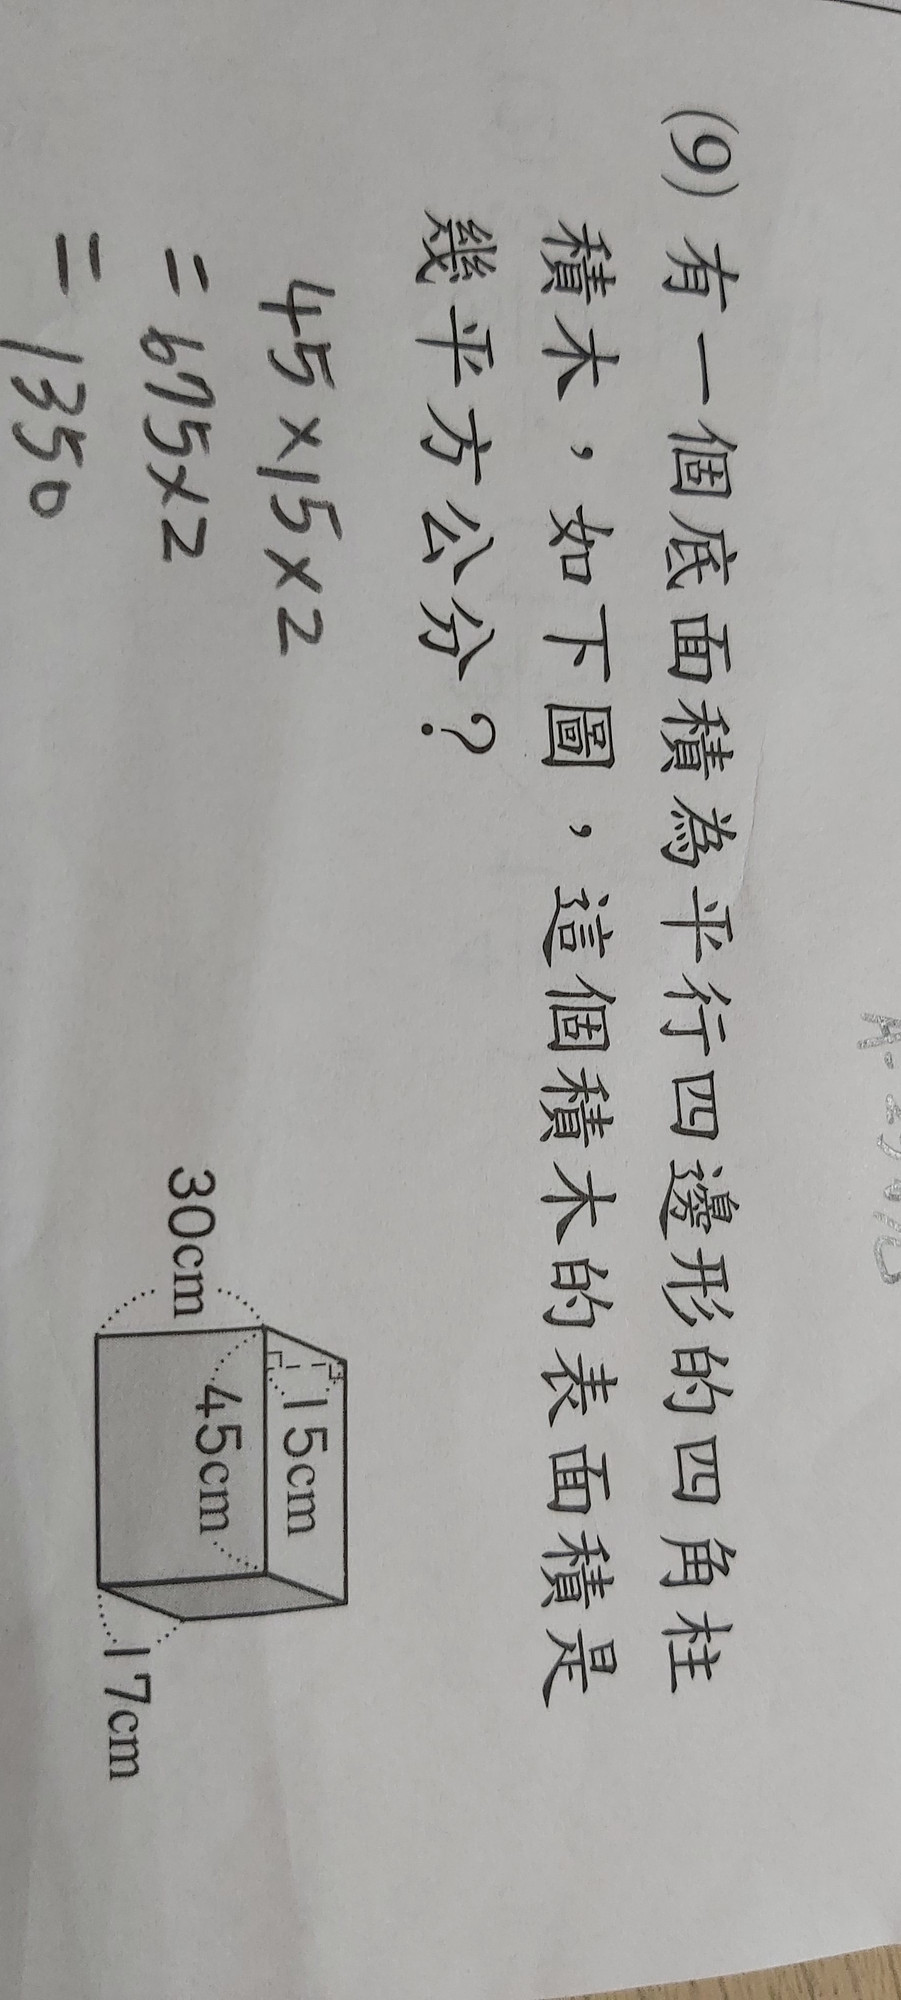 (9) 有一個底面積為平行四邊形的四角柱
積木，如下圖，這個積木的表面積是
幾平方公分？
45×15×2
=675×2
=1350
15cm
30cm
45cm
17cm